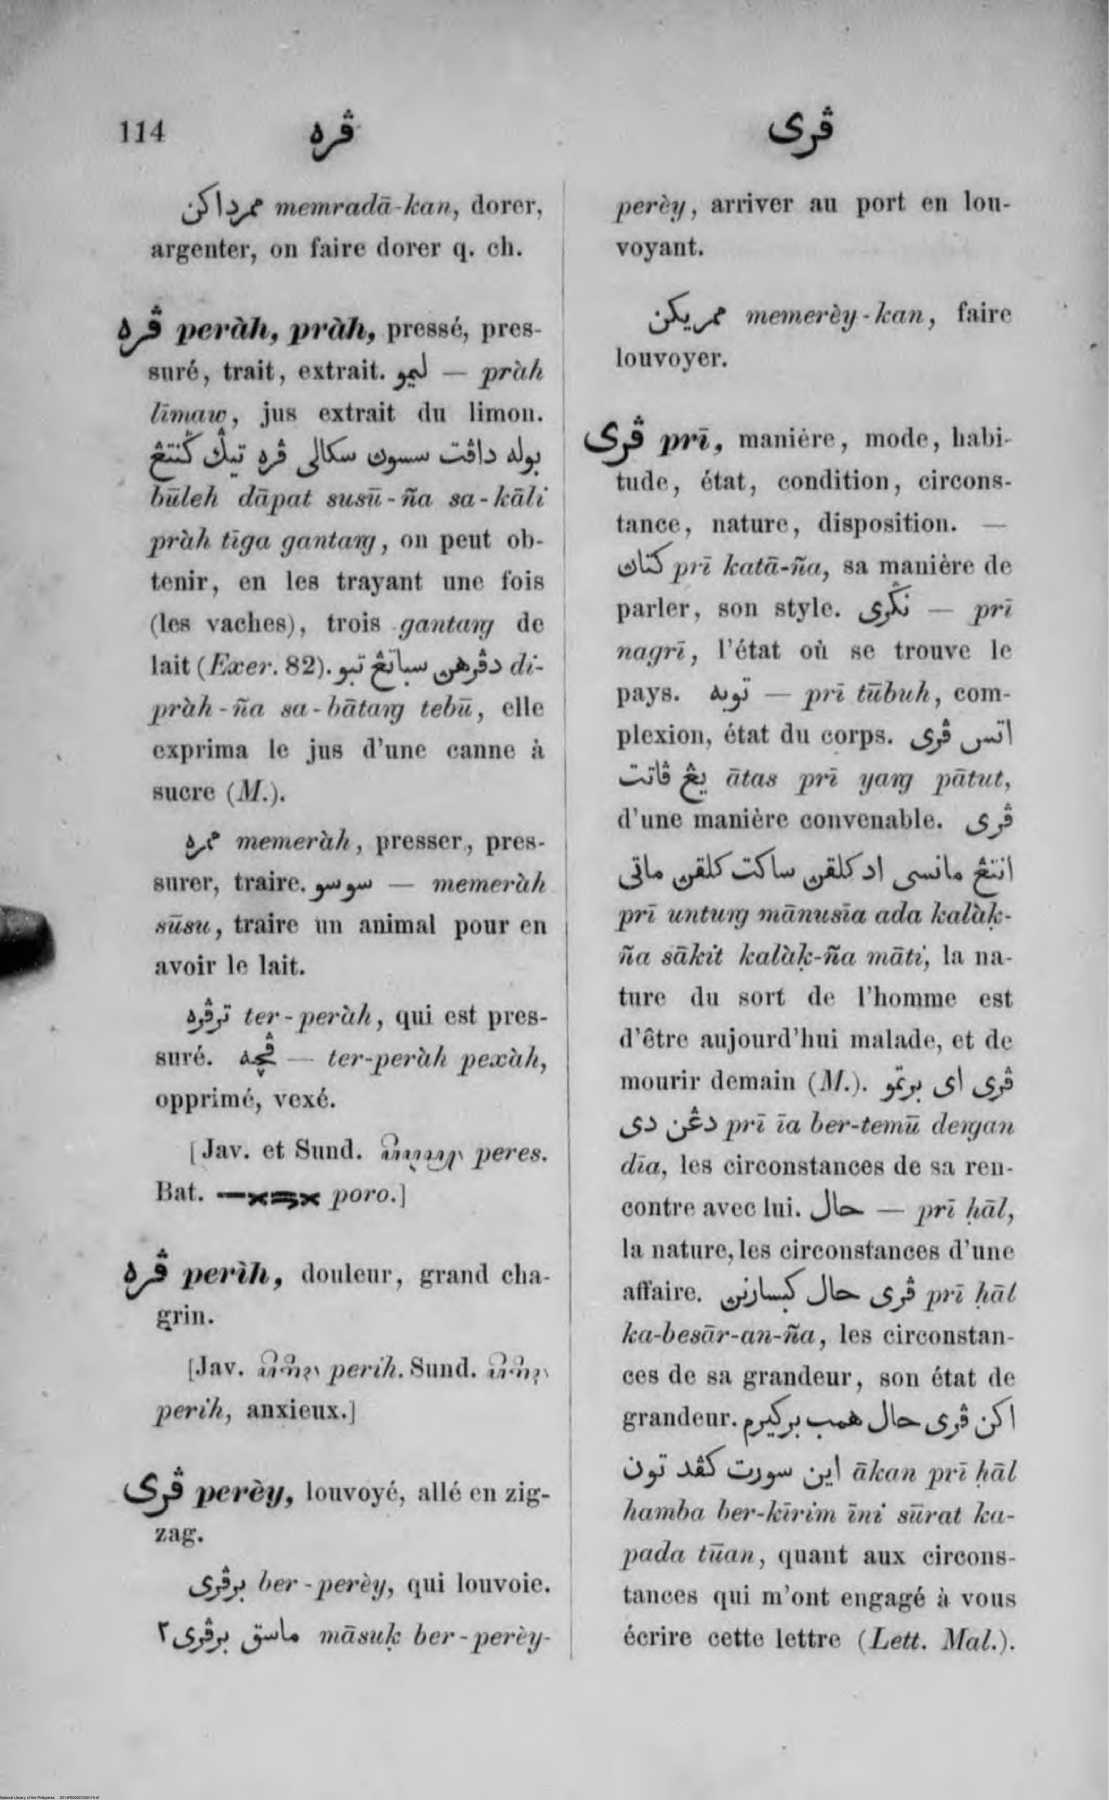 114 ڤره ڤرى
ممرداکن memradā-kan, dorer,
argenter, on faire dorer q. ch.
ڤره peràh, pràh, pressé, pres-
suré, trait, extrait. ليمو — pràh
līmaw, jus extrait du limon.
بوله داڤت سسوڽ سکالى ڤره تيݢ ݢنتڠ
būleh dāpat susū-ña sa-kāli
pràh tīga gantaꞑ, on peut ob-
tenir, en les trayant une fois
(les vaches), trois gantaꞑ de
lait (Exer. 82). دڤرهڽ سباتڠ تبو di-
pràh-ña sa-bātaꞑ tebū, elle
exprima le jus d'une canne à
sucre (M.).
ممره memeràh, presser, pres-
surer, traire. سوسو — memeràh
sūsu, traire un animal pour en
avoir le lait.
ترڤره ter-peràh, qui est pres-
suré. ڤچه — ter-peràh pexàh,
opprimé, vexé.
[Jav. et Sund. peres.
Bat. poro.]
ڤره perìh, douleur, grand cha-
grin.
[Jav. perih. Sund.
perih, anxieux.]
ڤرى perèy, louvoyé, allé en zig-
zag.
برڤرى ber-perèy, qui louvoie.
ماسق برڤرى٢ māsuḳ ber-perèy-
perèy, arriver au port en lou-
voyant.
ممريکن memerèy-kan, faire
louvoyer.
ڤرى prī, manière, mode, habi-
tude, état, condition, circons-
tance, nature, disposition. —
کتاڽ prī katā-ña, sa manière de
parler, son style. نݢرى — prī
nagrī, l'état où se trouve le
pays. توبه — prī tūbuh, com-
plexion, état du corps. اتس ڤرى
يڠ ڤاتت ātas prī yaꞑ pātut,
d'une manière convenable. ڤرى
انتڠ مانسى اد کلقڽ ساکت کلقڽ ماتى
prī untuꞑ mānusīa ada kalàḳ-
ña sākit kalàḳ-ña māti, la na-
ture du sort de l'homme est
d'être aujourd'hui malade, et de
mourir demain (M.). ڤرى اى برتمو
دڠن دى prī īa ber-temū deꞑan
dīa, les circonstances de sa ren-
contre avec lui. حال — prī ḥāl,
la nature, les circonstances d'une
affaire. ڤرى حال کبسارنڽ prī ḥāl
ka-besār-an-ña, les circonstan-
ces de sa grandeur, son état de
grandeur. اکن ڤرى حال همب برکيرم
اين سورت کڤد تون ākan prī ḥāl
hamba ber-kīrim īni sūrat ka-
pada tūan, quant aux circons-
tances qui m'ont engagé à vous
écrire cette lettre (Lett. Mal.).